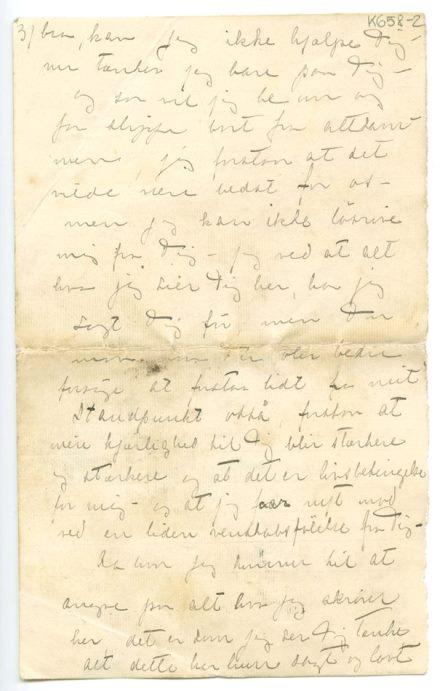 K658-2
3/ bra, kan jeg ikke hjælpe Dig –
nu tænker jeg bare paa Dig –
og saa vil jeg be om og
faa slippe bort fra alt
men, jeg forstaar at det
vilde være bedst for os –
men jeg kan ikke løsrive
mig fra Dig – jeg ved at alt
hva jeg sier Dig her, har jeg
sagt Dig før, men Du
maa
forsøge at forstaa lidt fra mit
Standpunkt også, forstaa at
min kjærlighed til Dig blir stærkere
og stærkere og at det er livsbetingelse
for mig – og at jeg har mist mod
ved en liden venskabsfølelse fra Dig –
Da om jeg kommer til at
angre paa alt hva jeg skriver
her, det er som jeg ser Dig tænke
alt dette har hun sagt og lovt